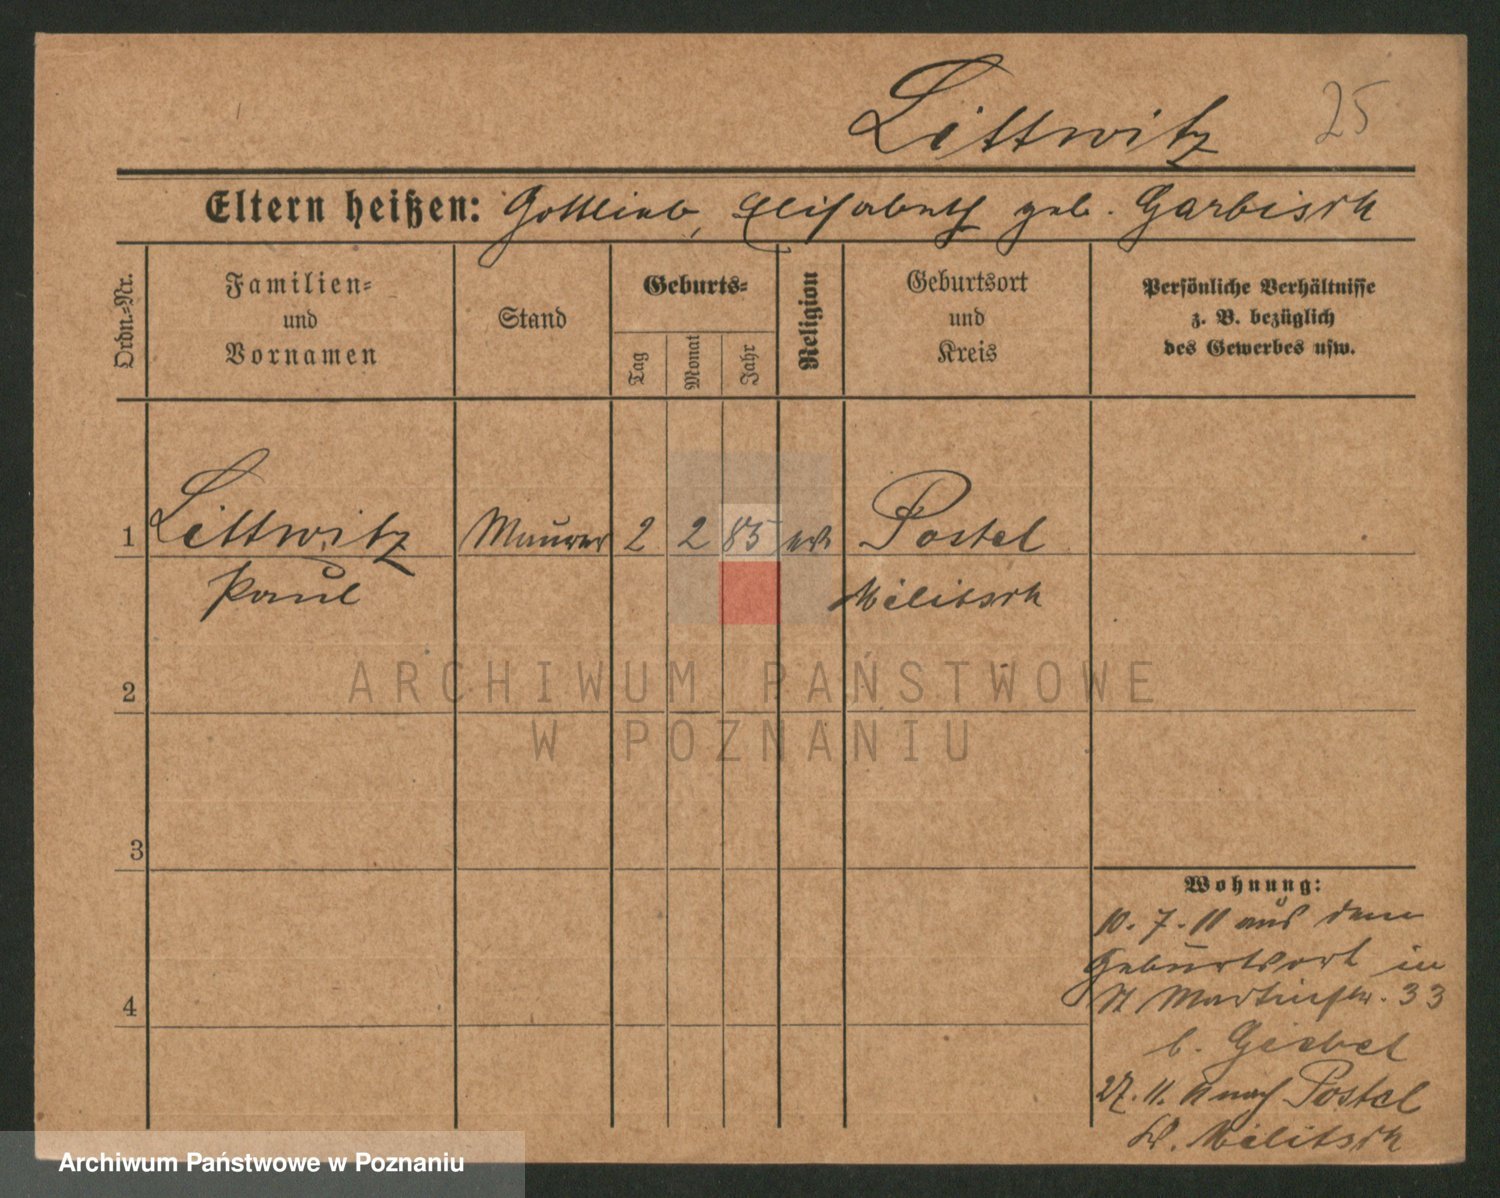 Littwitz 25
Eltern heißen: Gottlieb, Elisabeth geb. Garbisch
Ordn.-Nr.
Familien-
und
Vornamen
Stand
Geburts-
Tag
Monat
Jahr
Religion
Geburtsort
und
Kreis
Persönliche Verhältnisse
z. B. bezüglich
des Gewerbes usw.
1 Littwitz Maurer 2 2 85 ev Postel
Paul Militsch
2
3
4
Wohnung:
10. 7. 11 aus dem
Geburtsort in
St Martinstr. 33
b. Giebel
27. 11. 11 nach Postel
Kr. Militsch
ARCHIWUM PAŃSTWOWE
W POZNANIU
Archiwum Państwowe w Poznaniu